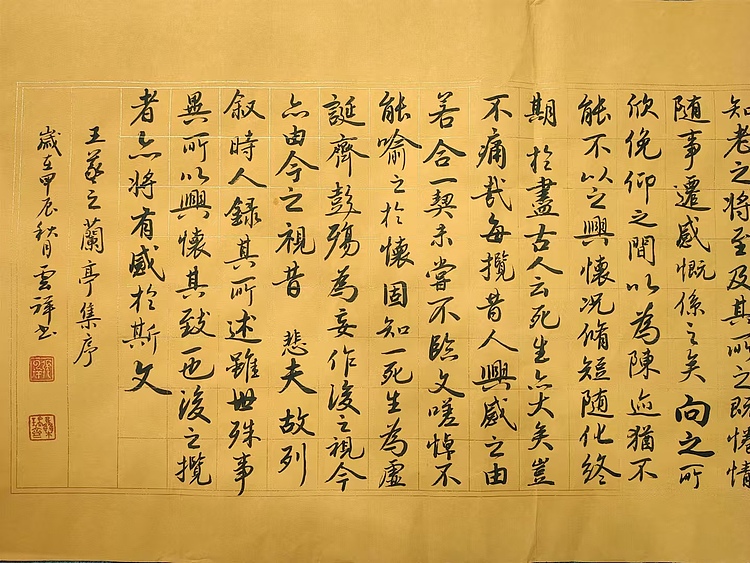 知老之将至及其所之既惓情
随事遷感慨係之矣向之所
欣俛仰之間以為陳迹猶不
能不以之興懷况脩短随化終
期於盡古人云死生亦大矣豈
不痛哉每攬昔人興感之由
若合一契未嘗不臨文嗟悼不
能喻之於懷固知一死生為虛
誕齊彭殤為妄作後之視今
亦由今之視昔 悲夫故列
叙時人録其所述雖世殊事
異所以興懷其致一也後之攬
者亦将有感於斯文
王羲之蘭亭集序
歲在甲辰秋月雲祥书